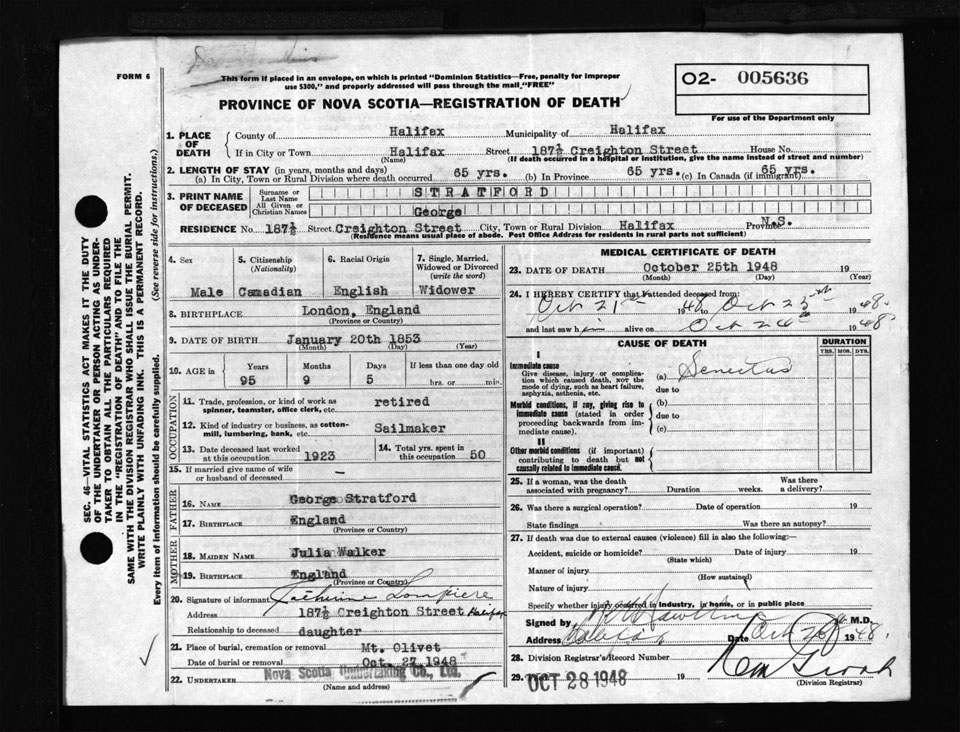 FORM 6
This form if placed in an envelope, on which is printed "Dominion Statistics—Free, penalty for improper
use $300," and properly addressed will pass through the mail "FREE"
PROVINCE OF NOVA SCOTIA—REGISTRATION OF DEATH
O2- 005636
For use of the Department only
SEC. 46—VITAL STATISTICS ACT MAKES IT THE DUTY
OF THE UNDERTAKER OR PERSON ACTING AS UNDER-
TAKER TO OBTAIN ALL THE PARTICULARS REQUIRED
IN THE "REGISTRATION OF DEATH" AND TO FILE THE
SAME WITH THE DIVISION REGISTRAR WHO SHALL ISSUE THE BURIAL PERMIT.
WRITE PLAINLY WITH UNFADING INK. THIS IS A PERMANENT RECORD.
Every item of information should be carefully supplied. (See reverse side for instructions.)
1. PLACE OF DEATH
County of Halifax Municipality of Halifax
If in City or Town Halifax Street 187½ Creighton Street House No.
(Name) (If death occurred in a hospital or institution, give the name instead of street and number)
2. LENGTH OF STAY (in years, months and days)
(a) In City, Town or Rural Division where death occurred 65 yrs. (b) In Province 65 yrs. (c) In Canada (if immigrant) 65 yrs.
3. PRINT NAME OF DECEASED
Surname or Last Name STRATFORD
All Given or Christian Names George
RESIDENCE No. 187½ Street Creighton Street City, Town or Rural Division Halifax Province N.S.
(Residence means usual place of abode. Post Office Address for residents in rural parts not sufficient)
4. Sex
Male
5. Citizenship (Nationality)
Canadian
6. Racial Origin
English
7. Single, Married, Widowed or Divorced (write the word)
Widower
8. BIRTHPLACE London, England
(Province or Country)
9. DATE OF BIRTH January 20th 1853
(Month) (Day) (Year)
10. AGE in Years Months Days If less than one day old
95 9 5 hrs. or min.
OCCUPATION
11. Trade, profession, or kind of work as
spinner, teamster, office clerk, etc. retired
12. Kind of industry or business, as cotton-
mill, lumbering, bank, etc. Sailmaker
13. Date deceased last worked
at this occupation 1923
14. Total yrs. spent in
this occupation 50
15. If married give name of wife
or husband of deceased —
FATHER
16. NAME George Stratford
17. BIRTHPLACE England
(Province or Country)
MOTHER
18. MAIDEN NAME Julia Walker
19. BIRTHPLACE England
(Province or Country)
20. Signature of informant Katherine
Address 187½ Creighton Street Halifax
Relationship to deceased daughter
21. Place of burial, cremation or removal Mt. Olivet
Date of burial or removal Oct. 27, 1948
22. UNDERTAKER Nova Scotia Undertaking Co., Ltd.
(Name and address)
MEDICAL CERTIFICATE OF DEATH
23. DATE OF DEATH October 25th 1948 19
(Month) (Day) (Year)
24. I HEREBY CERTIFY that I attended deceased from:
Oct 21st 1948 to Oct 25th 1948.
and last saw him alive on Oct 24th 1948
CAUSE OF DEATH
DURATION
YRS. MOS. DYS.
I
Immediate cause
Give disease, injury or complica-
tion which caused death, NOT the
mode of dying, such as heart failure,
asphyxia, asthenia, etc.
(a) Senectus
due to
Morbid conditions, if any, giving rise to
immediate cause (stated in order
proceeding backwards from im-
mediate cause).
(b)
due to
(c)
II
Other morbid conditions (if important)
contributing to death but not
causally related to immediate cause.
25. If a woman, was the death
associated with pregnancy? Duration weeks. Was there
a delivery?
26. Was there a surgical operation? Date of operation 19
State findings Was there an autopsy?
27. If death was due to external causes (violence) fill in also the following:—
Accident, suicide or homicide? Date of injury 19
(State which)
Manner of injury
(How sustained)
Nature of injury
Specify whether injury occurred in industry, in home, or in public place
Signed by M.D.
Address Halifax Date Oct 26 1948.
28. Division Registrar's Record Number
29. OCT 28 1948 19
(Division Registrar)